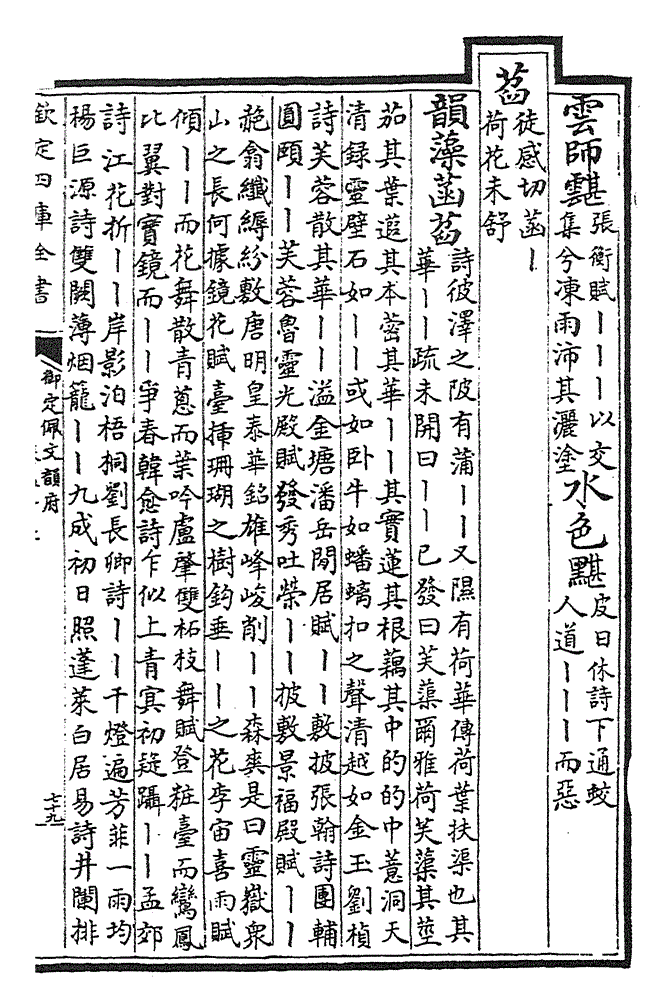 雲師䨴張衡賦丨丨丨以交
集兮凍雨沛其灑塗水色黮皮日休詩下通蛟
人道丨丨丨而惡
萏徒感切菡丨
荷花未舒
韻藻菡萏詩彼澤之陂有蒲丨丨又隰有荷華傳荷葉扶渠也其
華丨丨疏未開曰丨丨已發曰芙蕖爾雅荷芙蕖其莖
茄其葉蕸其本蔤其華丨丨其實蓮其根藕其中的的中薏洞天
清録靈壁石如丨丨或如卧牛如蟠螭扣之聲清越如金玉劉楨
詩芙蓉散其華丨丨溢金塘潘岳閒居賦丨丨敷披張翰詩團輔
圓頤丨丨芙蓉魯靈光殿賦發秀吐榮丨丨披敷景福殿賦丨丨
赩翕纖縟紛敷唐明皇泰華銘雄峰峻削丨丨森爽是曰靈嶽衆
山之長何據鏡花賦臺揷珊瑚之樹鈎垂丨丨之花李宙喜雨賦
傾丨丨而花舞散青蔥而葉吟盧肇雙柘枝舞賦登粧臺而鸞鳳
比翼對寶鏡而丨丨爭春韓愈詩乍似上青冥初疑躡丨丨孟郊
詩江花折丨丨岸影泊梧桐劉長卿詩丨丨千燈遍芳菲一雨均
楊巨源詩雙闕薄烟籠丨丨九成初日照蓬萊白居易詩井闌排
欽定四庫全書
御定佩文韻府
七十九